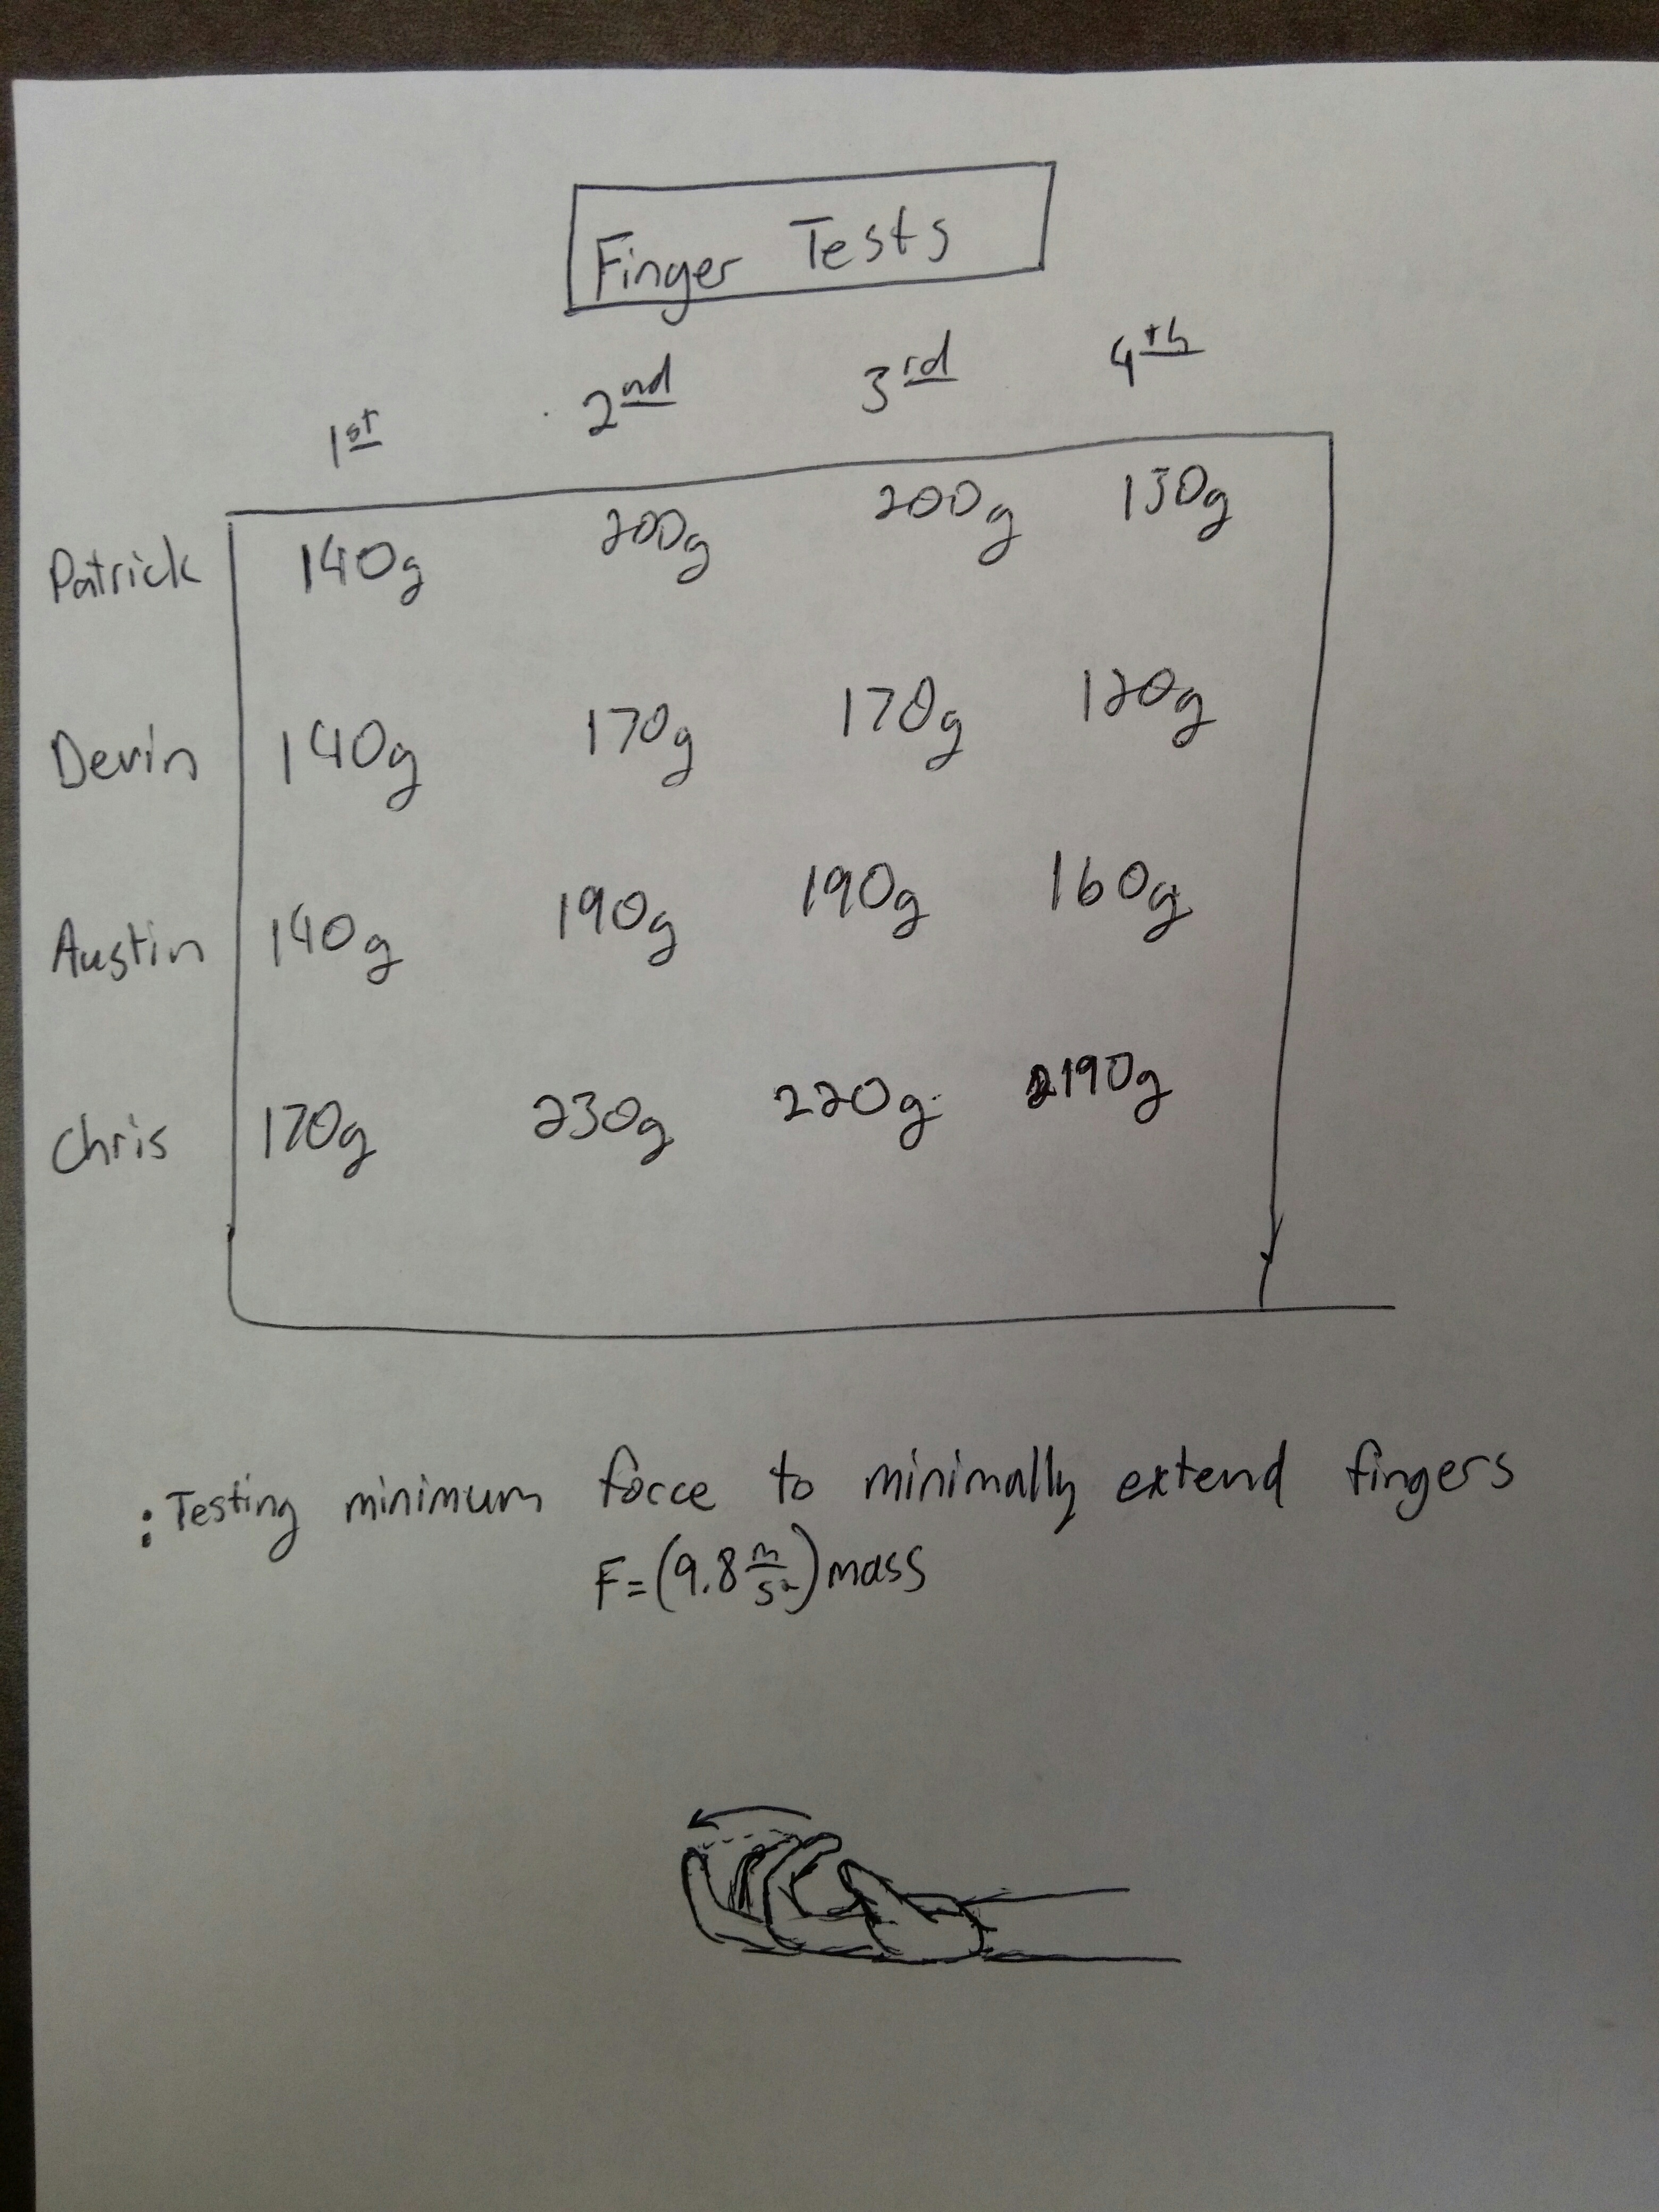 Finger Tests
1st 2nd 3rd 4th
Patrick 140g 200g 200g 130g
Devin 140g 170g 170g 120g
Austin 140g 190g 190g 160g
Chris 170g 230g 220g 190g
: Testing minimum force to minimally extend fingers
F=(9.8 m/s²)mass